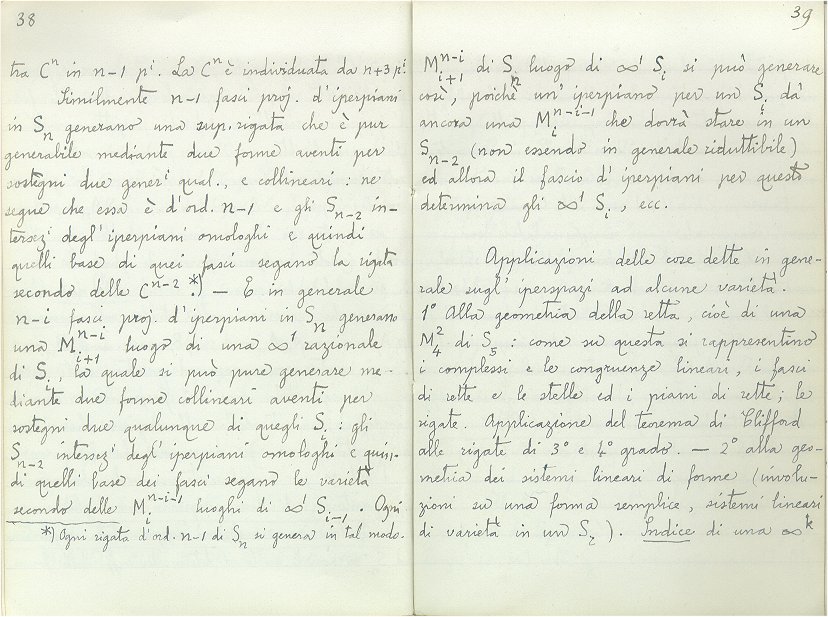 38
tra Cⁿ in n-1 pⁱ. La Cⁿ è individuata da n+3 pⁱ.
Similmente n-1 fasci proj. d'iperpiani
in Sₙ generano una sup. rigata che è pur
generabile mediante due forme aventi per
sostegni due generⁱ qual., e collineari: ne
segue che essa è d'ord. n-1 e gli Sₙ₋₂ in-
tersezⁱ degl'iperpiani omologhi e quindi
quelli base di quei fasci segano la rigata
secondo delle Cⁿ⁻². *) — E in generale
n-i fasci proj. d'iperpiani in Sₙ generano
una Mᵢ₊₁ⁿ⁻ⁱ luogo di una ∞¹ razionale
di Sᵢ, la quale si può pure generare me-
diante due forme collineari aventi per
sostegni due qualunque di quegli Sᵢ: gli
Sₙ₋₂ intersezⁱ degl'iperpiani omologhi e quin-
di quelli base dei fasci segano le varietà
secondo delle Mᵢⁿ⁻ⁱ⁻¹ luoghi di ∞¹ Sᵢ₋₁. Ogni
*) Ogni rigata d'ord. n-1 di Sₙ si genera in tal modo.
39
Mᵢ₊₁ⁿ⁻ⁱ di Sₙ luogo di ∞¹ Sᵢ si può generare
così, poichè un'iperpiano per un Sᵢ dà
ancora una Mᵢⁿ⁻ⁱ⁻¹ che dovrà stare in un
Sₙ₋₂ (non essendo in generale riduttibile)
ed allora il fascio d'iperpiani per questo
determina gli ∞¹ Sᵢ, ecc.
Applicazioni delle cose dette in gene-
rale sugl'iperspazi ad alcune varietà.
1° Alla geometria della retta, cioè di una
M₄² di S₅: come su questa si rappresentino
i complessi e le congruenze lineari, i fasci
di rette e le stelle ed i piani di rette; le
rigate. Applicazione del teorema di Clifford
alle rigate di 3° e 4° grado. — 2° alla geo-
metria dei sistemi lineari di forme (involu-
zioni su una forma semplice, sistemi lineari
di varietà in un Sᵣ). Indice di una ∞ᵏ